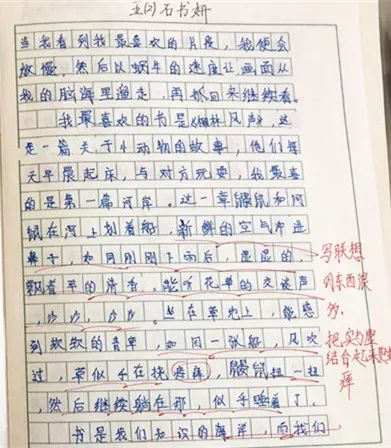 五(2)石书妍
当我看到我最喜欢的片段，我便会
放慢，然后以蜗牛的速度让画面从
我的脑海里遛走，再抓回来继续看。
我最喜欢的书是《柳林风声》，这
是一篇关于小动物的故事，他们每
天早晨起床，与对方玩耍，我最喜
的是第一篇河岸。这一章鼹鼠和河
鼠在河上划着船，新鲜的空气冲进
鼻子，如同刚刚下雨后，湿湿的，
飘着草的清香。能听花草的交谈声
，沙沙，沙沙。坐在草地上，能感
到软软的青草，如同一张船，风吹
过，草似乎在挠痒痒，鼹鼠扭一扭
，然后继续躺在那，似乎睡着了。
书是我们知识的海岸，而我们
写联想
的东西很
妙。
把实与虚
结合起来更好
痒